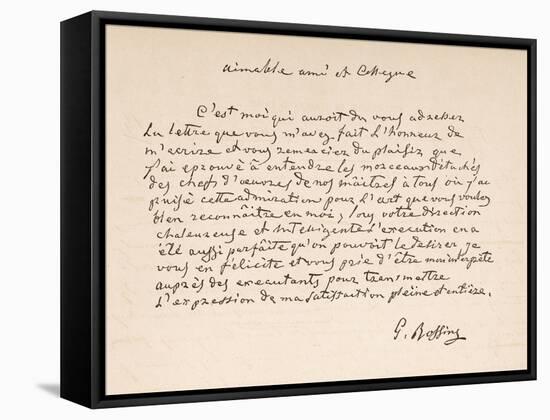 aimable ami et Collegue
C'est moi qui auroit du vous adresser
La lettre que vous m'avez fait L'honneur de
m'ecrire et vous remerciez du plaisir que
j'ai eprouvè à entendre les morceaux détachés
des chefs d'oeuvres de nos maîtres à tous où j'ai
puisé cette admiration pour L'art que vous voulez
bien reconnâitre en moi, sous votre direction
chaleureuse et intelligente L'execution en a
été aussi parfaite qu'on pouvoit le desirer je
vous en félicite et vous prie d'être mon interpète
auprès des executants pour transmettre
L'expression de ma satisfaction pleine et entière.
G. Rossini